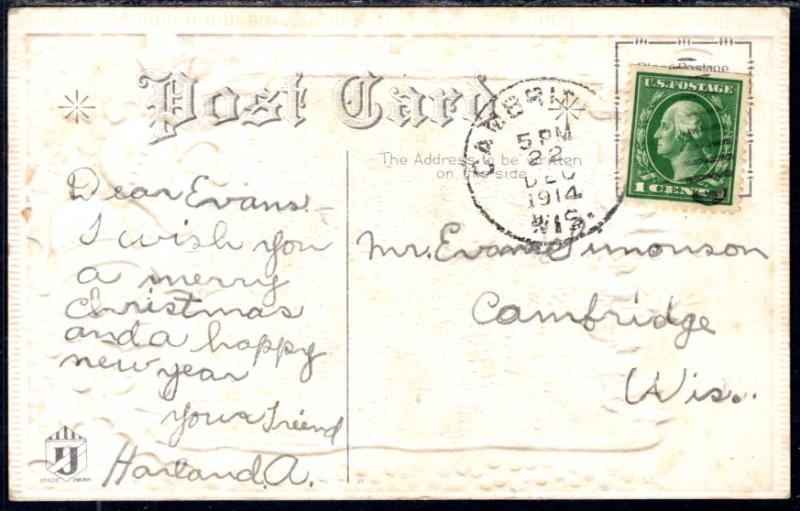 Post Card
Place Postage
The Address to be written
on this side
CAMBRID
5 PM
22
DEC
1914
WIS.
U.S. POSTAGE
1 CENT
Dear Evans.
I wish you
a merry
christmas
and a happy
new year
your Friend
Harland. A.
Mr. Evans Simonson
Cambridge
Wis.
TRADE MARK